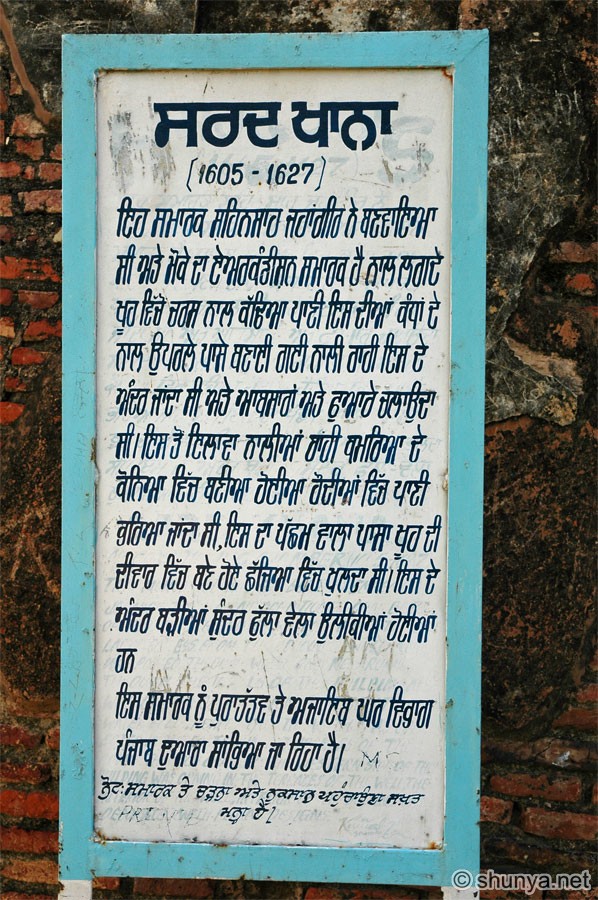 ਸਰਦ ਖਾਨਾ
(1605 - 1627)
ਇਹ ਸਮਾਰਕ ਸ਼ਹਿਨਸ਼ਾਹ ਜਹਾਂਗੀਰ ਨੇ ਬਣਵਾਇਆ
ਸੀ ਅਤੇ ਮੌਕੇ ਦਾ ਏਅਰਕੰਡੀਸ਼ਨ ਸਮਾਰਕ ਹੈ ਨਾਲ ਲਗਦੇ
ਖੂਹ ਵਿੱਚੋ ਚਰਸ ਨਾਲ ਕੱਢਿਆ ਪਾਣੀ ਇਸ ਦੀਆਂ ਕੰਧਾਂ ਦੇ
ਨਾਲ ਉਪਰਲੇ ਪਾਸੇ ਬਣਾਈ ਗਈ ਨਾਲੀ ਰਾਹੀ ਇਸ ਦੇ
ਅੰਦਰ ਜਾਂਦਾ ਸੀ ਅਤੇ ਆਬਸਾਰਾਂ ਅਤੇ ਫੁਆਰੇ ਚਲਾਉਂਦਾ
ਸੀ। ਇਸ ਤੋਂ ਇਲਾਵਾ ਨਾਲੀਆਂ ਰਾਂਹੀ ਕਮਰਿਆ ਦੇ
ਕੋਨਿਆ ਵਿੱਚ ਬਣੀਆ ਹੋਈਆ ਹੋਦੀਆਂ ਵਿੱਚ ਪਾਣੀ
ਭਰਿਆ ਜਾਂਦਾ ਸੀ, ਇਸ ਦਾ ਪੱਛਮ ਵਾਲਾ ਪਾਸਾ ਖੂਹ ਦੀ
ਦੀਵਾਰ ਵਿੱਚ ਬਣੇ ਹੋਏ ਛੱਜਿਆ ਵਿੱਚ ਖੁਲਦਾ ਸੀ। ਇਸ ਦੇ
ਅੰਦਰ ਬੜੀਆਂ ਸੁੰਦਰ ਫੁੱਲਾ ਵੇਲਾ ਉਲੀਕੀਆਂ ਹੋਈਆ
ਹਨ
ਇਸ ਸਮਾਰਕ ਨੂੰ ਪੁਰਾਤੱਤਵ ਤੇ ਅਜਾਇਬ ਘਰ ਵਿਭਾਗ
ਪੰਜਾਬ ਦੁਆਰਾ ਸਾਂਭਿਆ ਜਾ ਰਿਹਾ ਹੈ।
ਨੋਟ: ਸਮਾਰਕ ਤੇ ਚੜ੍ਹਨਾ ਅਤੇ ਨੁਕਸਾਨ ਪਹੁੰਚਾਇਣਾ ਸਖ਼ਤ
ਮਨ੍ਹਾ ਹੈ।
© shunya.net